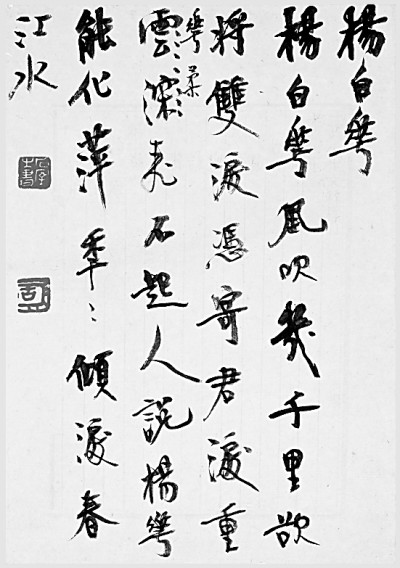 楊白華
楊白華風吹幾千里欲
將雙淚憑寄君淚重
華柔
雲深飛不起人說楊華
能化萍年〻傾淚春
江水